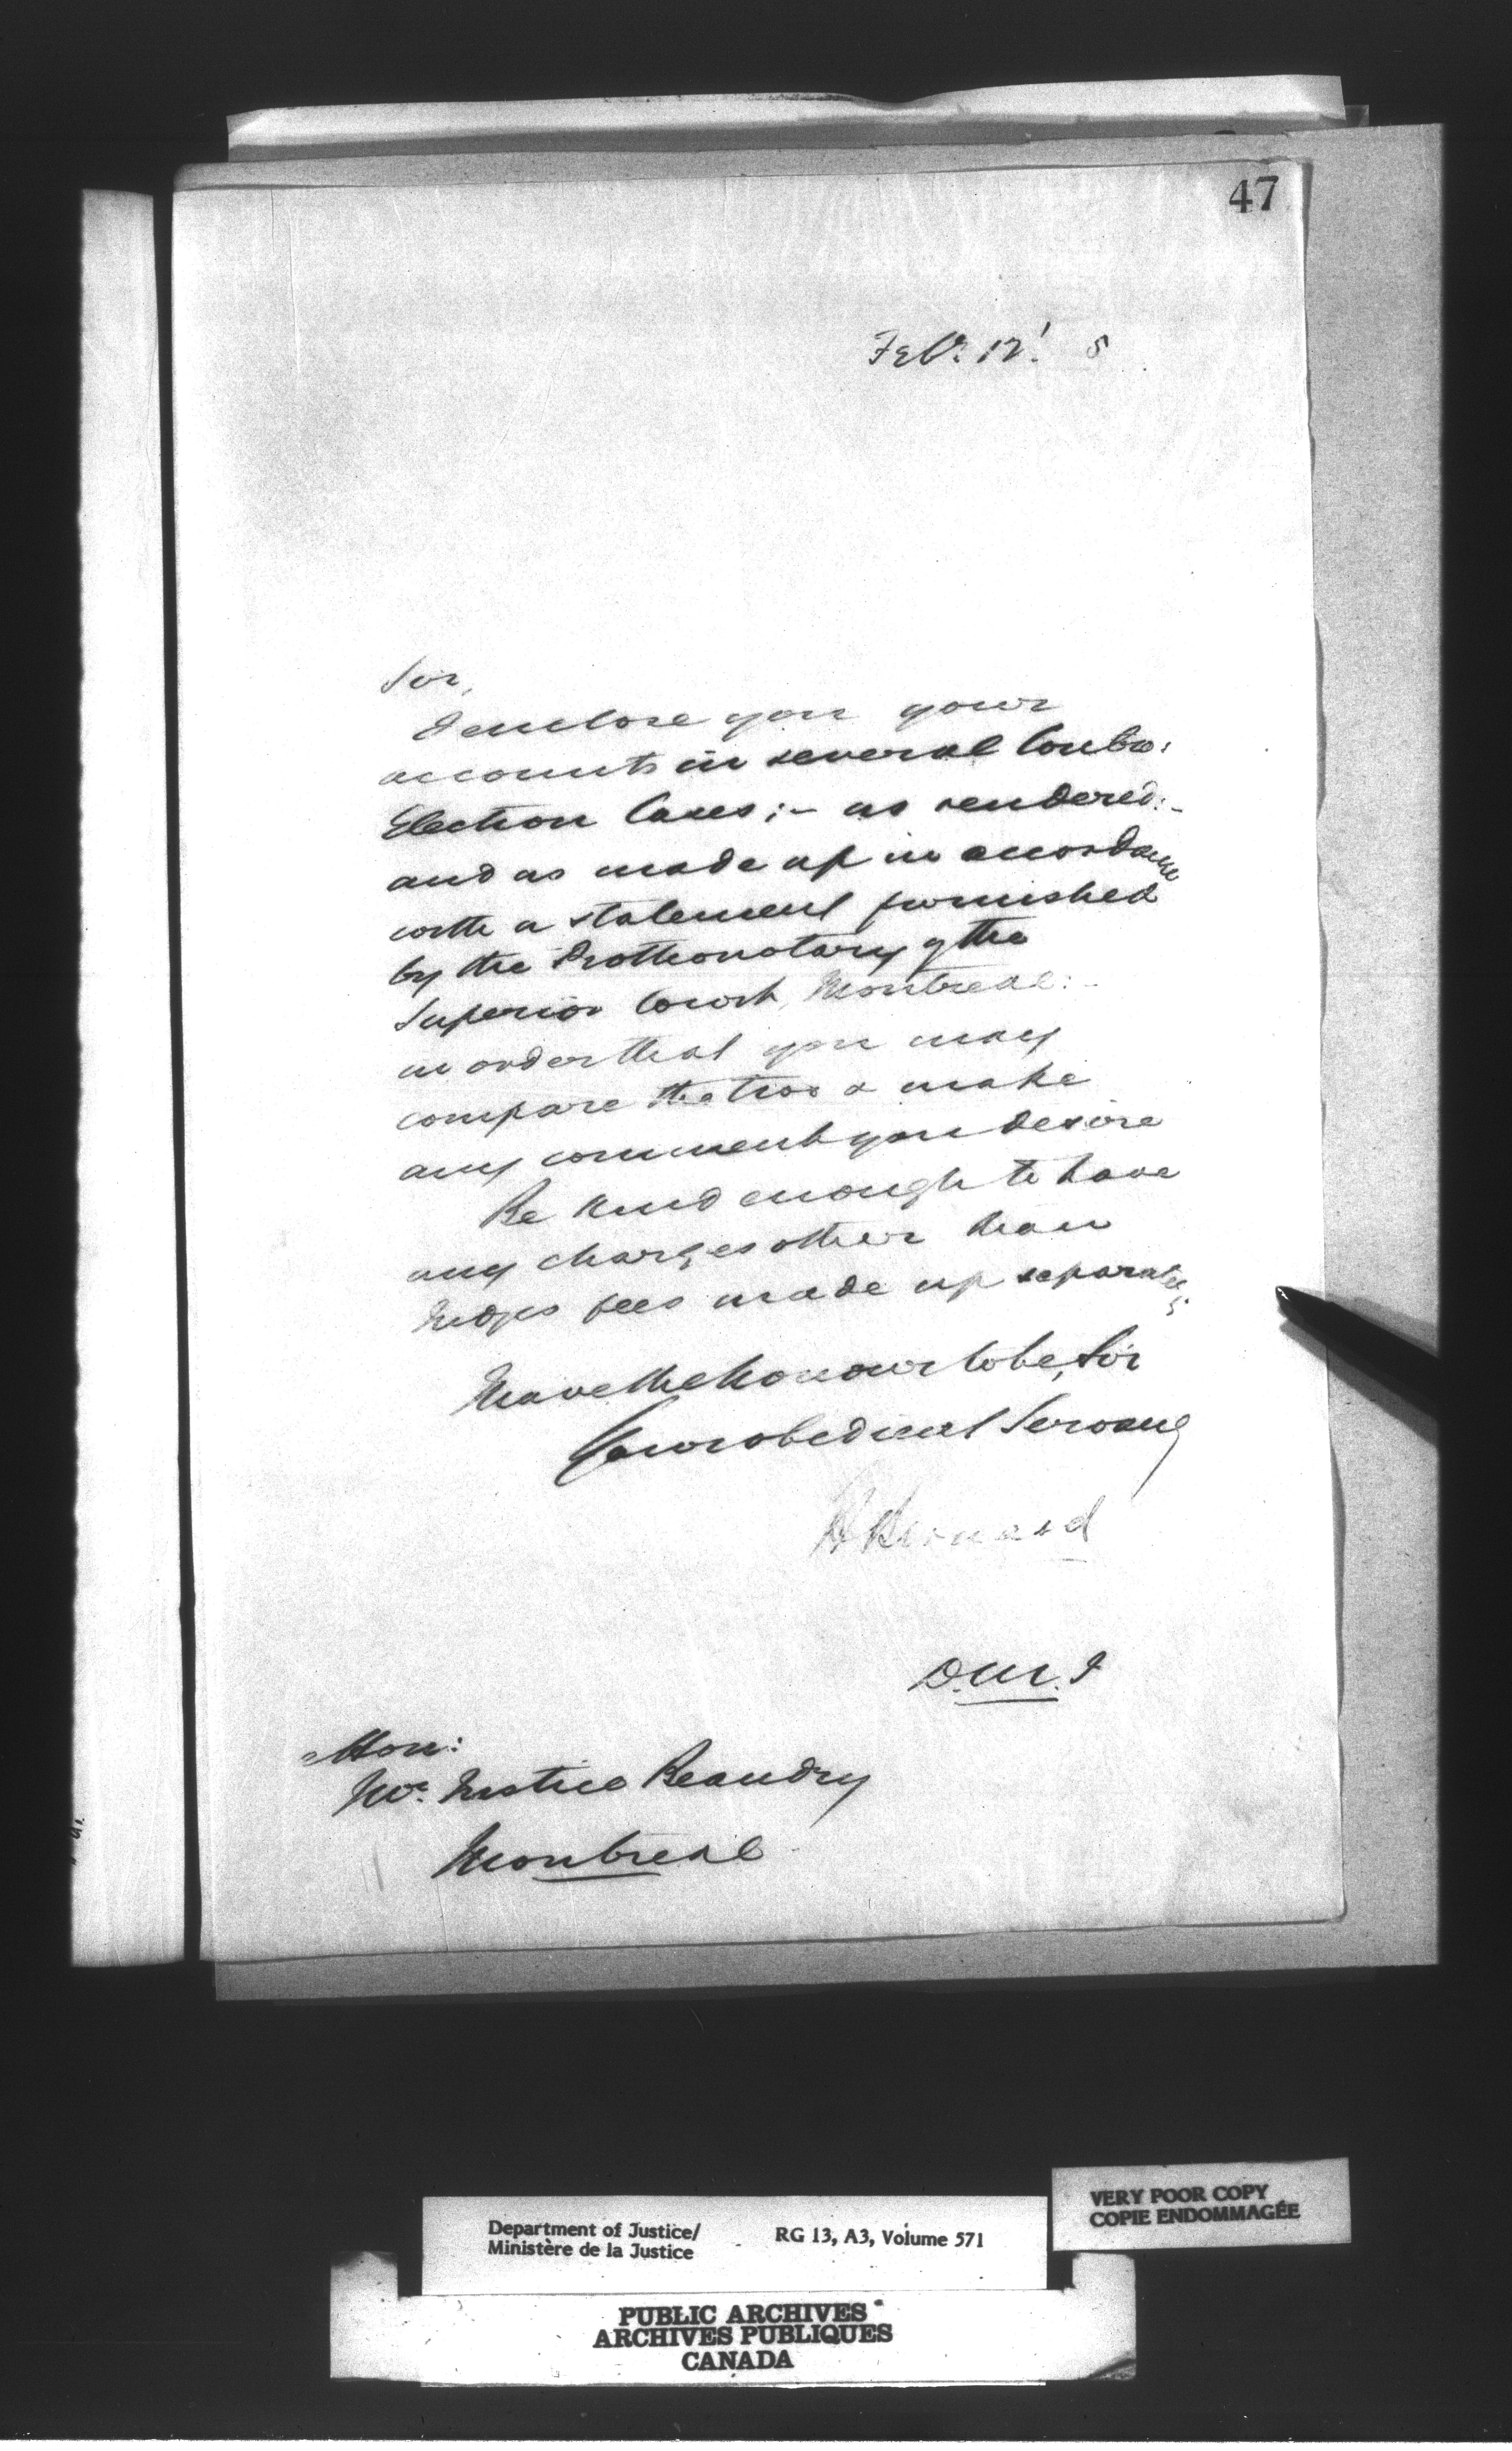 47
Feby. 12'. 5
Sir,
I enclose you your
accounts in several Contro:
Election Cases;– as rendered:–
and as made up in accordance
with a statement furnished
by the Prothonotary of the
Superior Court, Montreal:–
in order that you may
compare the two & make
any comment you desire
Be kind enough to have
any charges other than
Judges fees made up separately.
I have the honour to be, Sir
Your obedient Servant
H Bernard
D.M.J
Hon:
Mr. Justice Beaudry
Montreal
VERY POOR COPY
COPIE ENDOMMAGÉE
Department of Justice/ RG 13, A3, Volume 571
Ministère de la Justice
PUBLIC ARCHIVES
ARCHIVES PUBLIQUES
CANADA